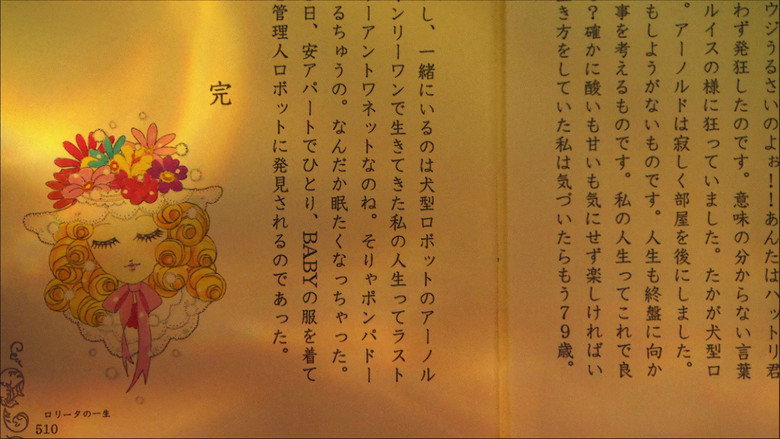 ウジうるさいのよぉ！！あんたはハットリ君
わず発狂したのです。意味の分からない言葉
ルイスの様に狂っていました。たかが犬型ロ
。アーノルドは寂しく部屋を後にしました。
もしようがないものです。人生も終盤に向か
事を考えるものです。私の人生ってこれで良
？確かに酸いも甘いも気にせず楽しければい
き方をしていた私は気づいたらもう79歳。
し、一緒にいるのは犬型ロボットのアーノル
ンリーワンで生きてきた私の人生ってラスト
ーアントワネットなのね。そりゃポンパドー
るちゅうの。なんだか眠たくなっちゃった。
日、安アパートでひとり、BABYの服を着て
管理人ロボットに発見されるのであった。
完
ロリータの一生
510